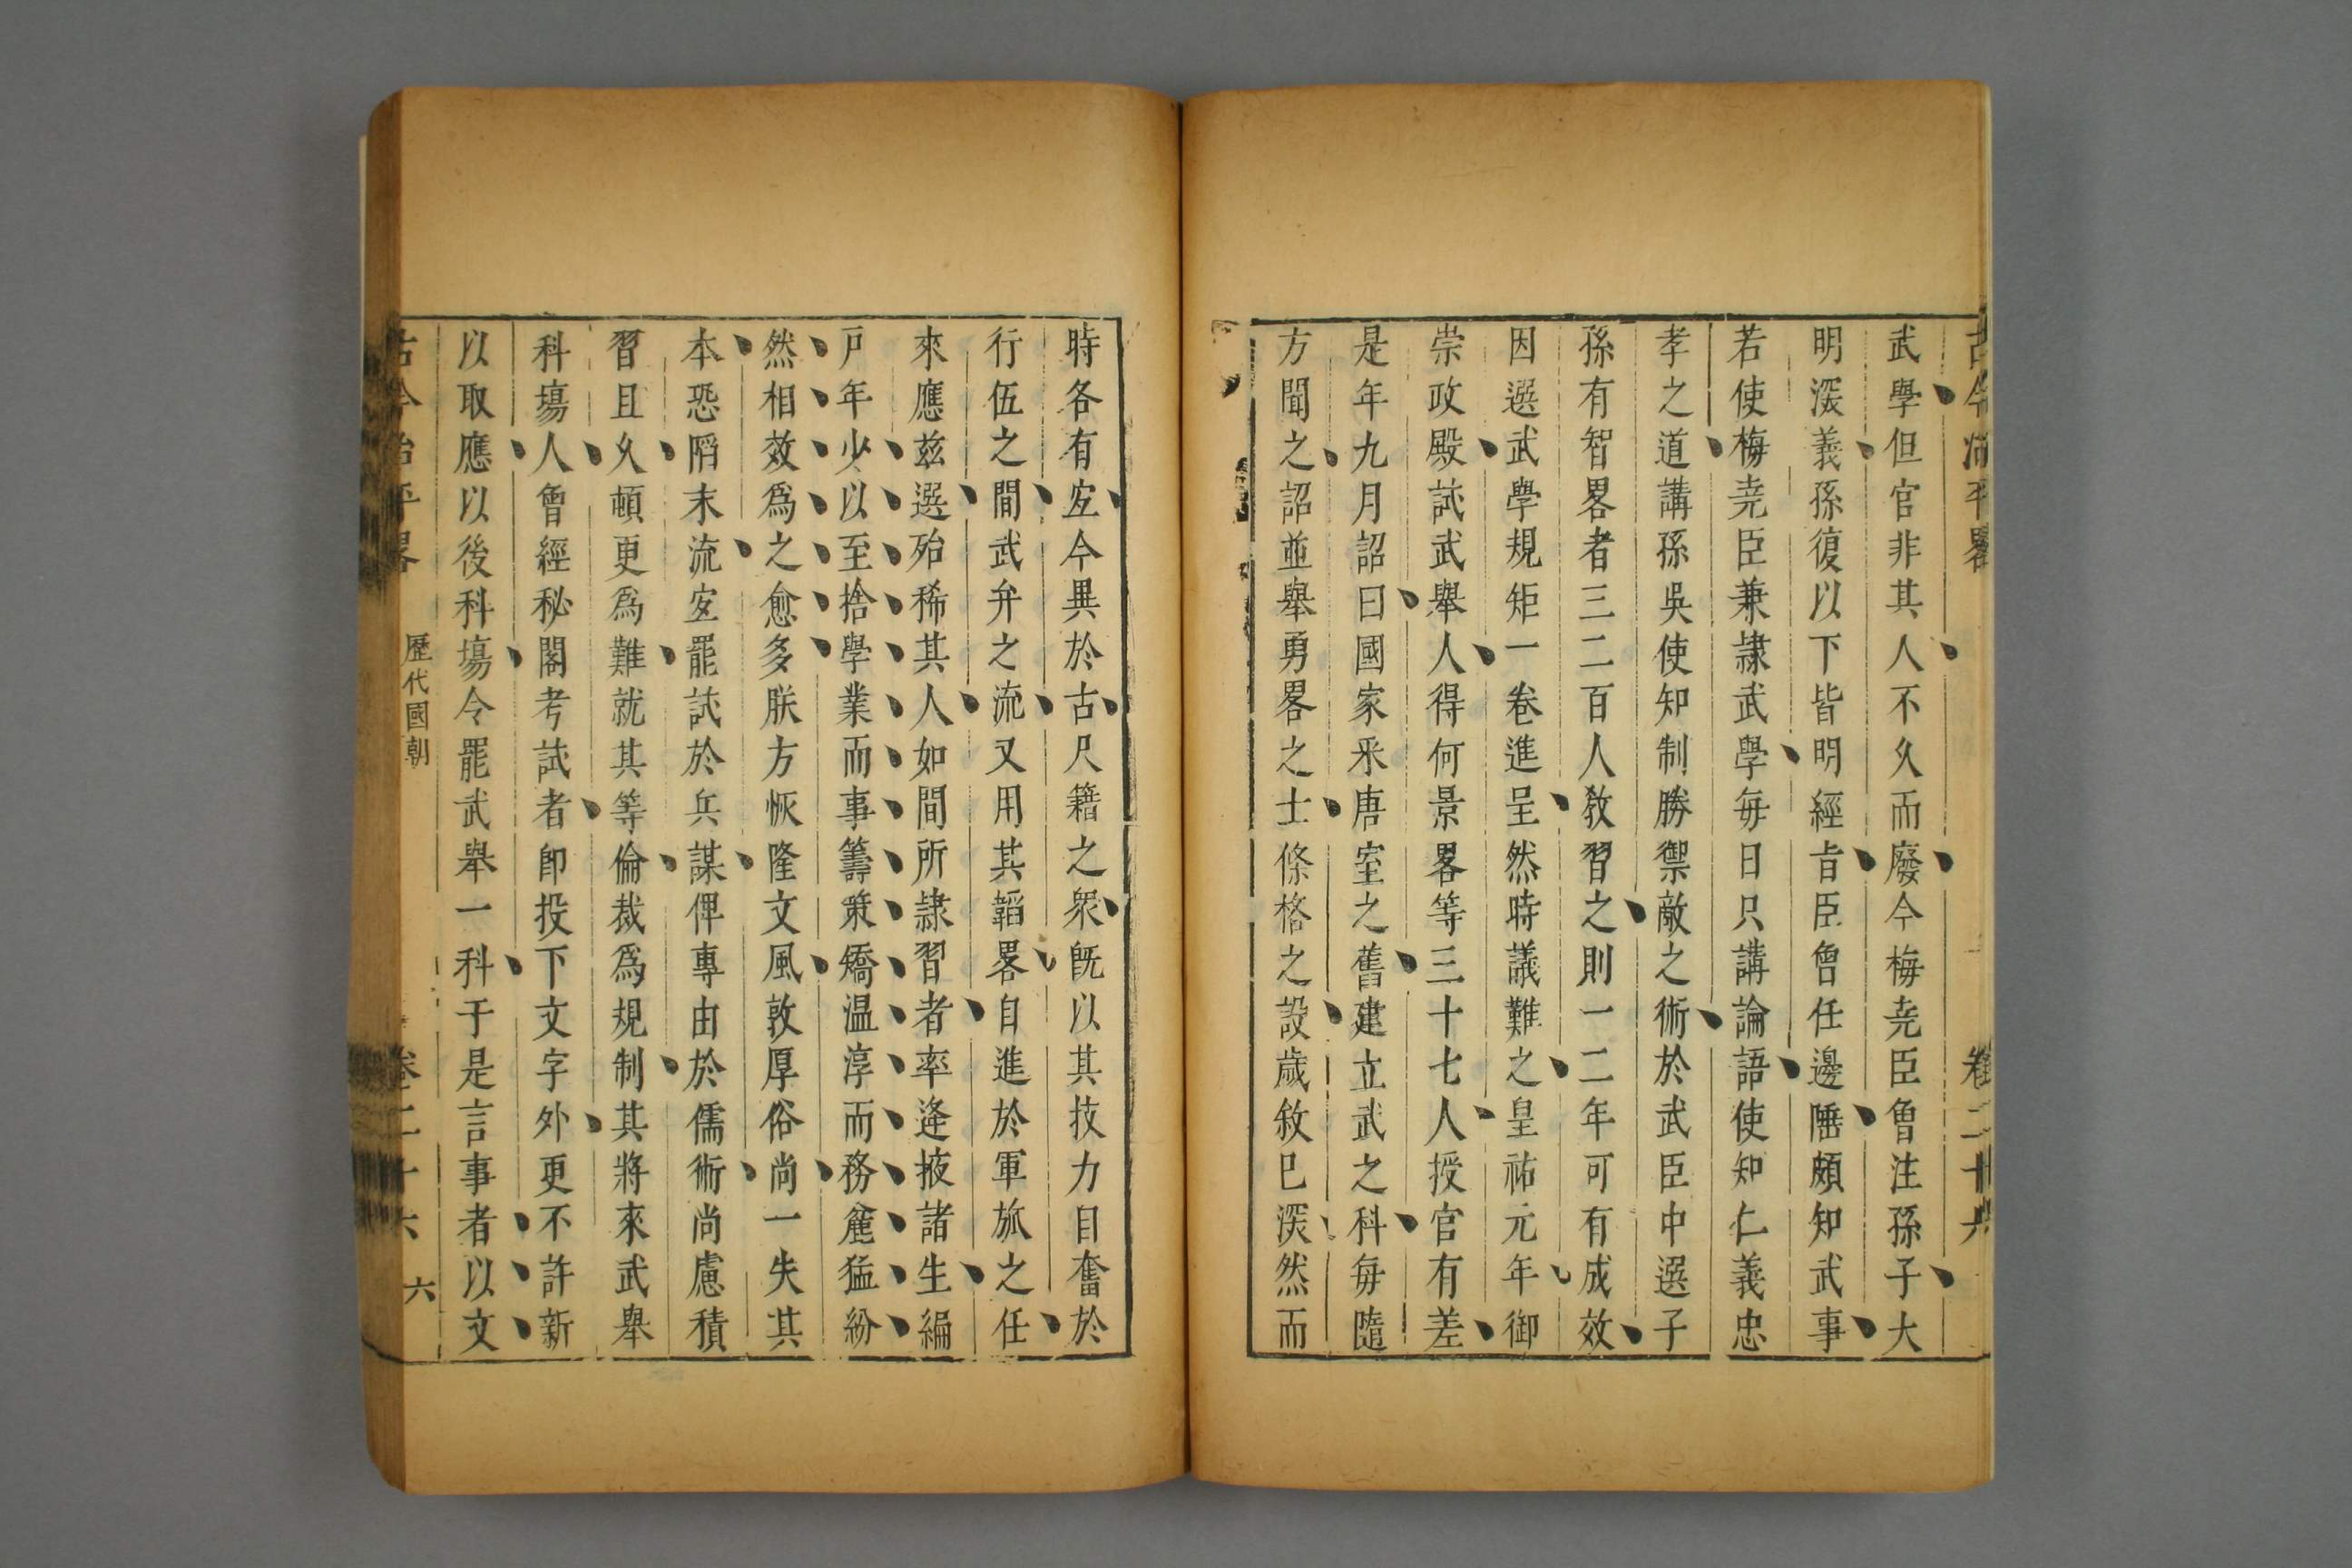 古今治平畧 卷二十六
武學但官非其人不久而廢今梅堯臣曾注孫子大
明深義孫復以下皆明經旨臣曾任邊陲頗知武事
若使梅堯臣兼隷武學每日只講論語使知仁義忠
孝之道講孫吳使知制勝禦敵之術於武臣中選子
孫有智畧者三二百人敎習之則一二年可有成效
因選武學規矩一卷進呈然時議難之皇祐元年御
崇政殿試武舉人得何景畧等三十七人授官有差
是年九月詔曰國家采唐室之舊建立武之科每隨
方聞之詔並舉勇畧之士條格之設歲敘已深然而
時各有宐今異於古尺籍之衆旣以其技力自奮於
行伍之間武弁之流又用其韜畧自進於軍旅之任
來應兹選殆稀其人如間所隷習者率逢掖諸生編
戸年少以至捨學業而事籌策矯温淳而務麄猛紛
然相效爲之愈多朕方恢隆文風敦厚俗尚一失其
本恐陷末流宐罷試於兵謀俾專由於儒術尚慮積
習且久頓更爲難就其等倫裁爲規制其將來武舉
科塲人曾經秘閣考試者卽投下文字外更不許新
以取應以後科塲令罷武舉一科于是言事者以文
古今治平畧 歷代國朝 卷二十六 六